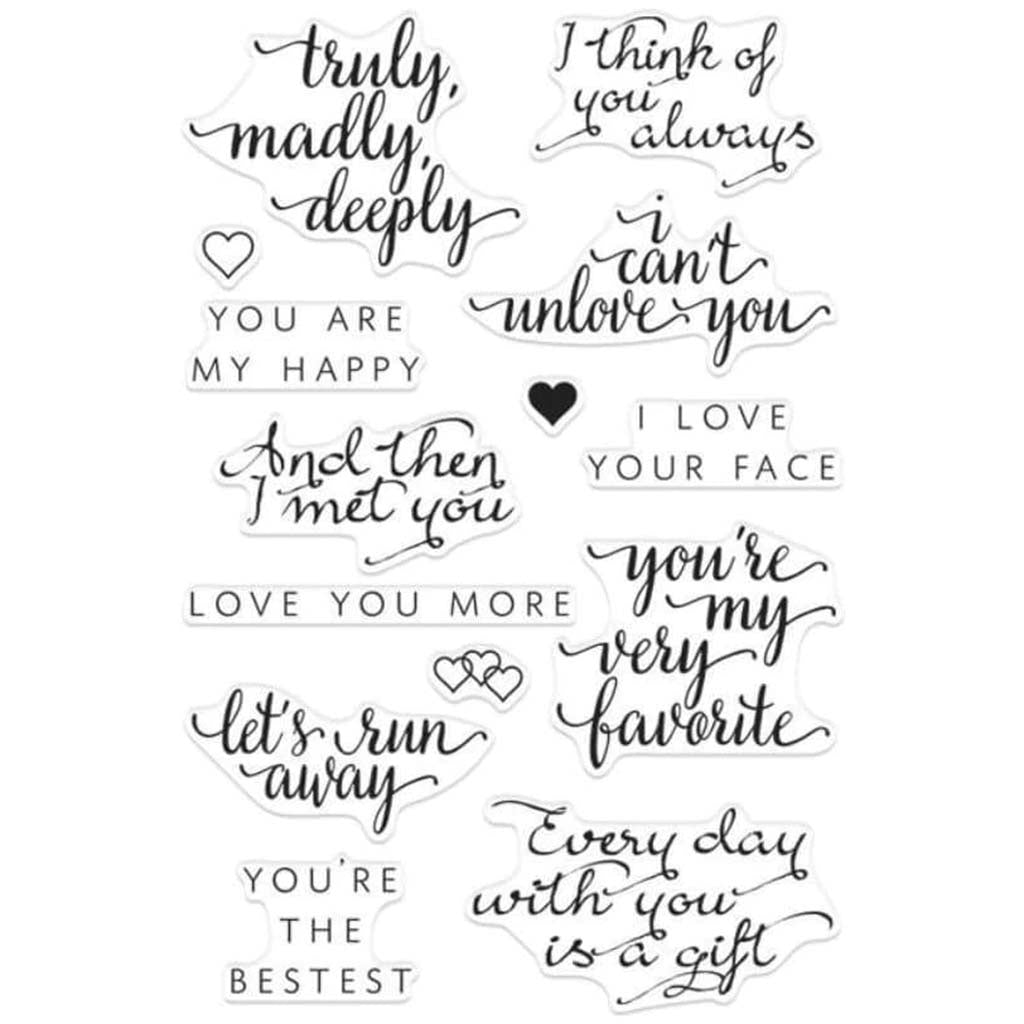 truly,
madly,
deeply
I think of
you
always
i
can't
unlove you
YOU ARE
MY HAPPY
I LOVE
YOUR FACE
And then
I met you
LOVE YOU MORE
you're
my
very
favorite
let's run
away
YOU'RE
THE
BESTEST
Every day
with you
is a gift